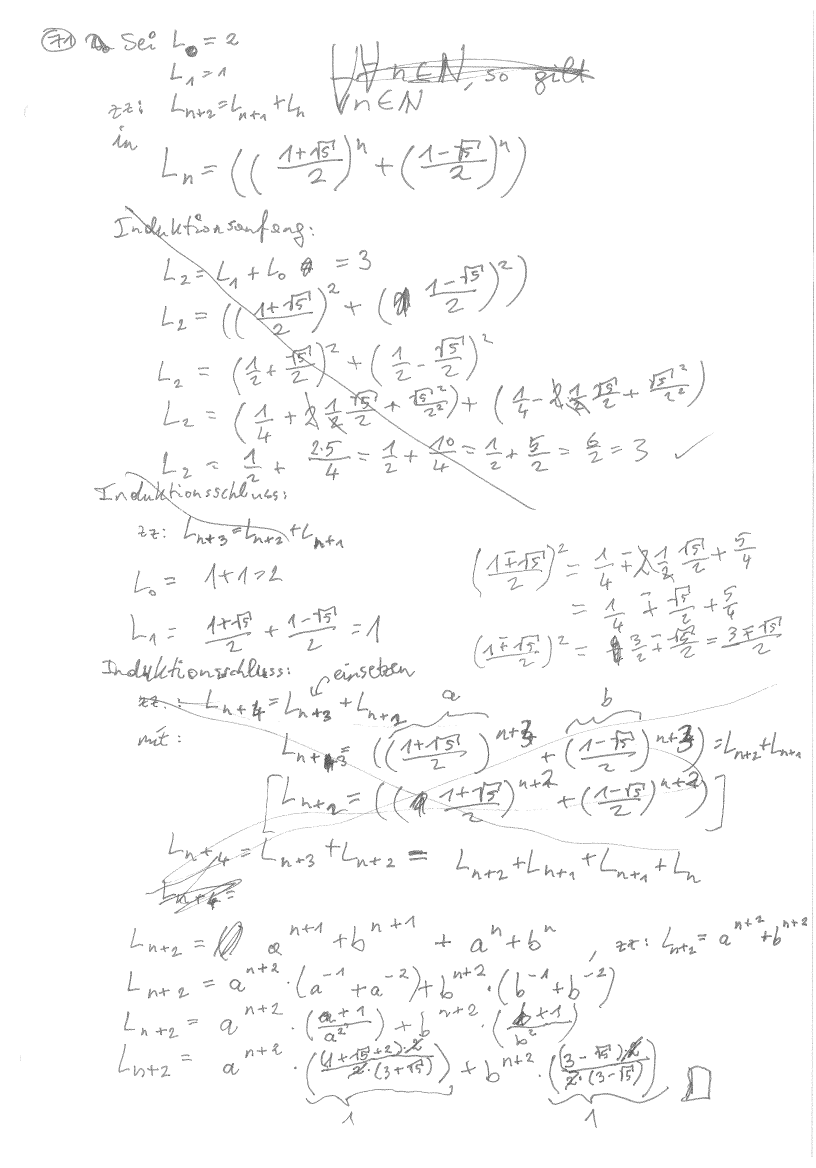 71 Sei L₀ = 2
L₁ = 1 ∀ n ∈ N, so gilt
zz: Lₙ₊₂ = Lₙ₊₁ + Lₙ ∀ n ∈ N
in
Lₙ = (((1+√5)/2)ⁿ + ((1-√5)/2)ⁿ)
Induktionsanfang:
L₂ = L₁ + L₀ = 3
L₂ = (((1+√5)/2)² + ((1-√5)/2)²)
L₂ = (1/2 + √5/2)² + (1/2 - √5/2)²
L₂ = (1/4 + 2 1/2 √5/2 + √5²/2²) + (1/4 - 2 1/2 √5/2 + √5²/2²)
L₂ = 1/2 + 2·5/4 = 1/2 + 10/4 = 1/2 + 5/2 = 6/2 = 3 ✓
Induktionsschluss:
zz: Lₙ₊₃ = Lₙ₊₂ + Lₙ₊₁
L₀ = 1+1=2
L₁ = (1+√5)/2 + (1-√5)/2 = 1
((1∓√5)/2)² = 1/4 ∓ 2 1/2 √5/2 + 5/4
= 1/4 ∓ √5/2 + 5/4
((1∓√5)/2)² = 3/2 ∓ √5/2 = (3∓√5)/2
Induktionsschluss:
einsetzen
zz.: Lₙ₊₄ = Lₙ₊₃ + Lₙ₊₂
a b
mit: Lₙ₊₃ = (((1+√5)/2)ⁿ⁺³ + ((1-√5)/2)ⁿ⁺³) = Lₙ₊₂ + Lₙ₊₁
[Lₙ₊₂ = (((1+√5)/2)ⁿ⁺² + ((1-√5)/2)ⁿ⁺²)]
Lₙ₊₄ = Lₙ₊₃ + Lₙ₊₂ = Lₙ₊₂ + Lₙ₊₁ + Lₙ₊₁ + Lₙ
Lₙ₊₄ =
Lₙ₊₂ = aⁿ⁺¹ + bⁿ⁺¹ + aⁿ + bⁿ , zz: Lₙ₊₂ = aⁿ⁺² + bⁿ⁺²
Lₙ₊₂ = aⁿ⁺² · (a⁻¹ + a⁻²) + bⁿ⁺² · (b⁻¹ + b⁻²)
Lₙ₊₂ = aⁿ⁺² · ((a+1)/a²) + bⁿ⁺² · ((b+1)/b²)
Lₙ₊₂ = aⁿ⁺² · (((1+√5+2)·2)/(2·(3+√5))) + bⁿ⁺² · (((3-√5)·2)/(2·(3-√5))) □
1 1